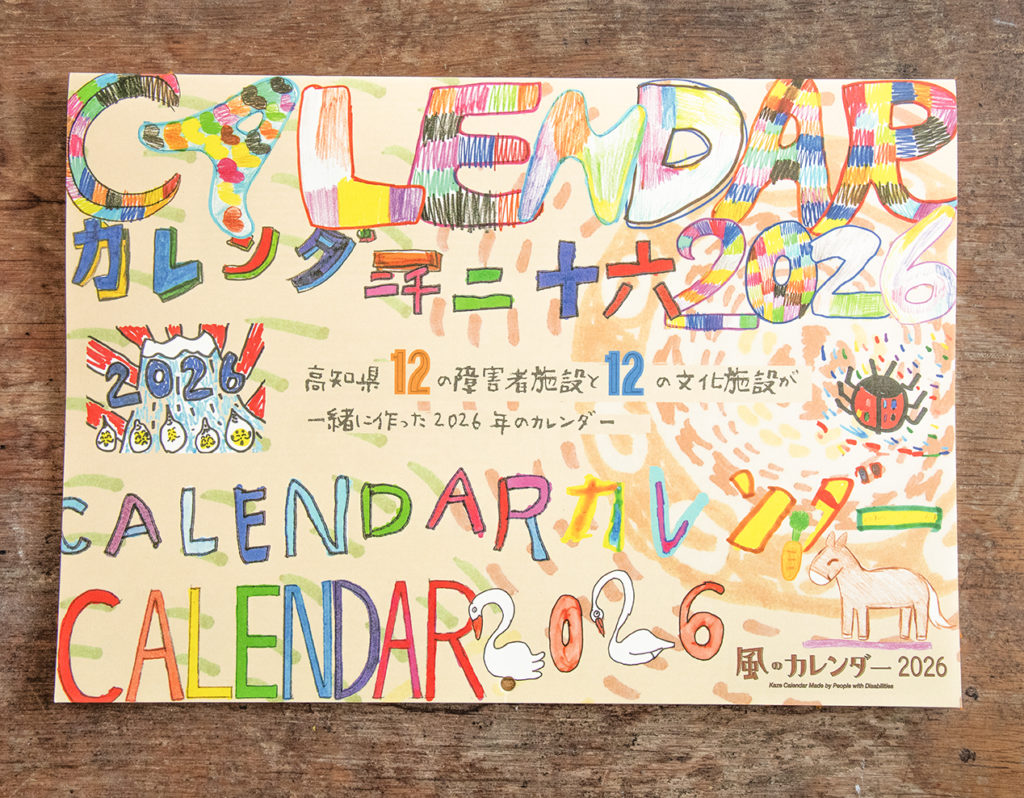 CALENDAR
カレンダー二千二十六 2026
2026
高知県12の障害者施設と12の文化施設が
一緒に作った2026年のカレンダー
CALENDARカレンダー
CALENDAR2026
風のカレンダー 2026
Kaze Calendar Made by People with Disabilities